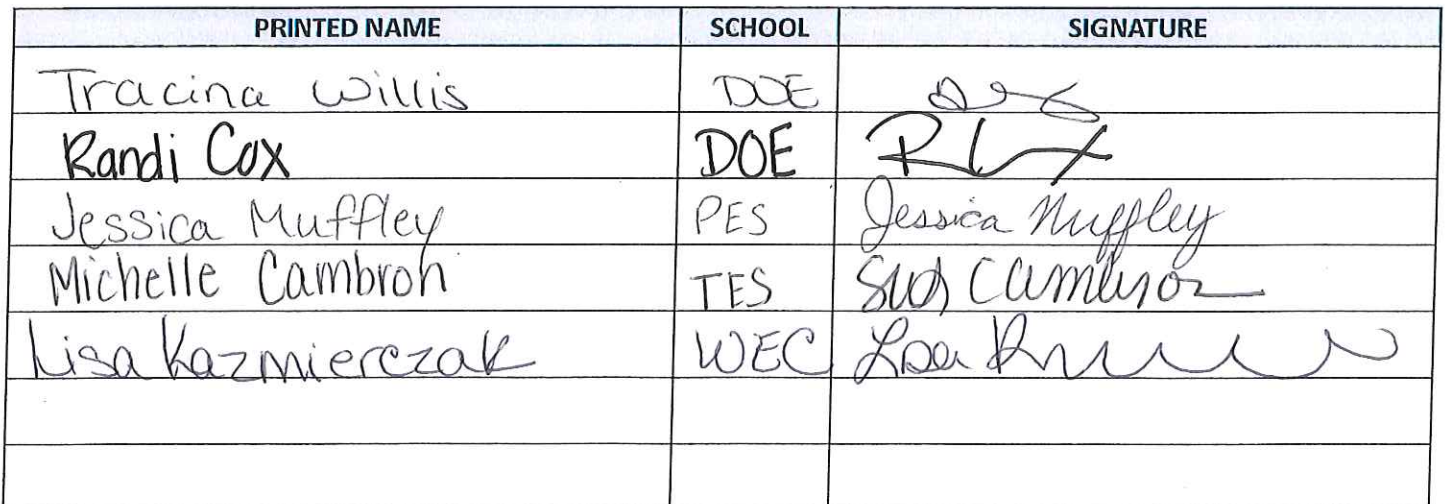 PRINTED NAME SCHOOL SIGNATURE
Tracina Willis DOE
Randi Cox DOE
Jessica Muffley PES Jessica Muffley
Michelle Cambron TES Cambron
Lisa Kazmierczak WEC Lisa